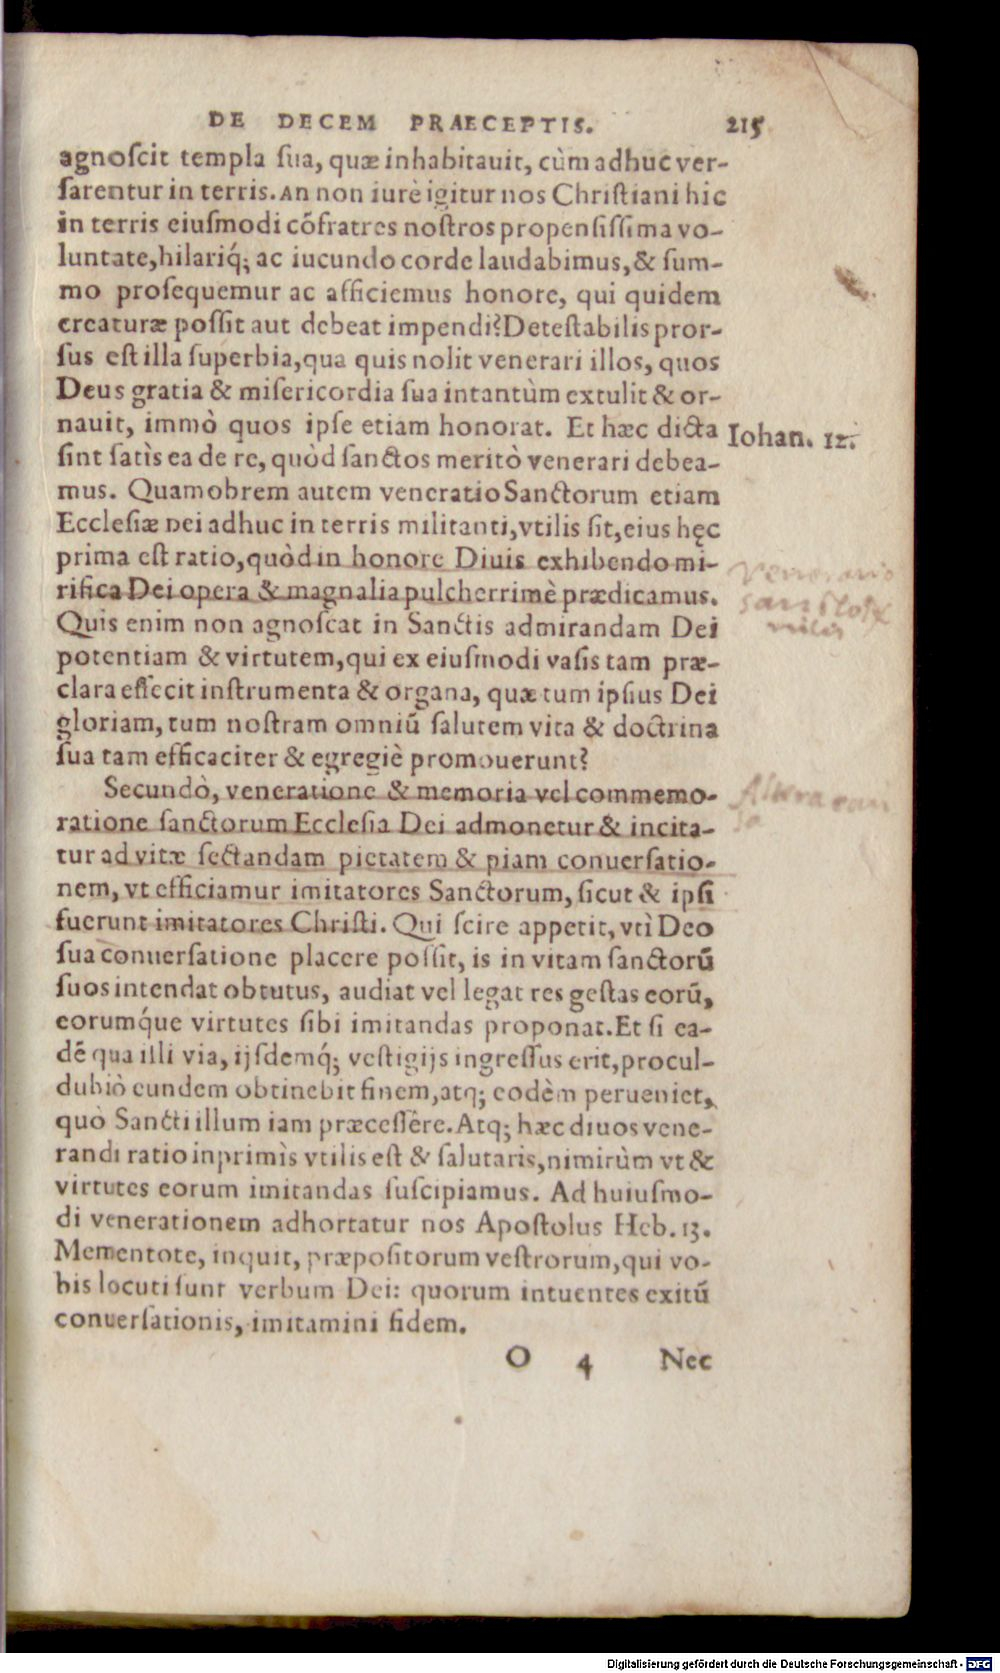 DE DECEM PRAECEPTIS. 215
agnoſcit templa ſua, quæ inhabitauit, cùm adhuc ver-
ſarentur in terris. An non iurè igitur nos Chriſtiani hic
in terris eiuſmodi cõfratres noſtros propenſiſſima vo-
luntate, hilariq́; ac iucundo corde laudabimus, & ſum-
mo proſequemur ac afficiemus honore, qui quidem
creaturæ poſſit aut debeat impendi? Deteſtabilis pror-
ſus eſt illa ſuperbia, qua quis nolit venerari illos, quos
Deus gratia & miſericordia ſua intantùm extulit & or-
nauit, immò quos ipſe etiam honorat. Et hæc dicta
Iohan. 12.
ſint ſatìs ea de re, quòd ſanctos meritò venerari debea-
mus. Quamobrem autem veneratio Sanctorum etiam
Eccleſiæ Dei adhuc in terris militanti, vtilis ſit, eius hęc
prima eſt ratio, quòd in honore Diuis exhibendo mi-
rifica Dei opera & magnalia pulcherrimè prædicamus.
Veneratio
sanctorũ
vtilis
Quis enim non agnoſcat in Sanctis admirandam Dei
potentiam & virtutem, qui ex eiuſmodi vaſis tam præ-
clara effecit inſtrumenta & organa, quæ tum ipſius Dei
gloriam, tum noſtram omniũ ſalutem vita & doctrina
ſua tam efficaciter & egregiè promouerunt?
Secundò, veneratione & memoria vel commemo-
Altera cau
sa
ratione ſanctorum Eccleſia Dei admonetur & incita-
tur ad vitæ ſectandam pietatem & piam conuerſatio-
nem, vt efficiamur imitatores Sanctorum, ſicut & ipſi
fuerunt imitatores Chriſti. Qui ſcire appetit, vtì Deo
ſua conuerſatione placere poſſit, is in vitam ſanctorũ
ſuos intendat obtutus, audiat vel legat res geſtas eorũ,
eorumq́ue virtutes ſibi imitandas proponat. Et ſi ea-
dẽ qua illi via, ijſdemq́; veſtigijs ingreſſus erit, procul-
dubiò eundem obtinebit finem, atq; eodèm perueniet,
quò Sancti illum iam præceſſêre. Atq; hæc diuos vene-
randi ratio inprimìs vtilis eſt & ſalutaris, nimirùm vt &
virtutes eorum imitandas ſuſcipiamus. Ad huiuſmo-
di venerationem adhortatur nos Apoſtolus Heb. 13.
Mementote, inquit, præpoſitorum veſtrorum, qui vo-
bis locuti ſunt verbum Dei: quorum intuentes exitũ
conuerſationis, imitamini fidem.
O 4 Nec
Digitalisierung gefördert durch die Deutsche Forschungsgemeinschaft - DFG